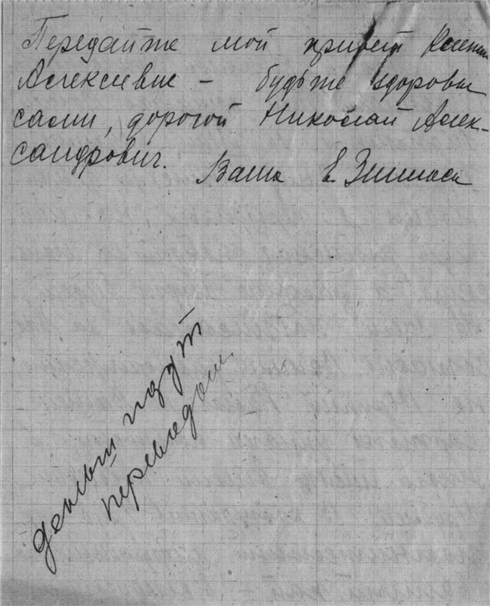 Передайте мой привет Ксении
Алексевне - будьте здоровы
сами, дорогой Николай Алек-
сандрович. Ваша Е.
деньги идут
переводом.